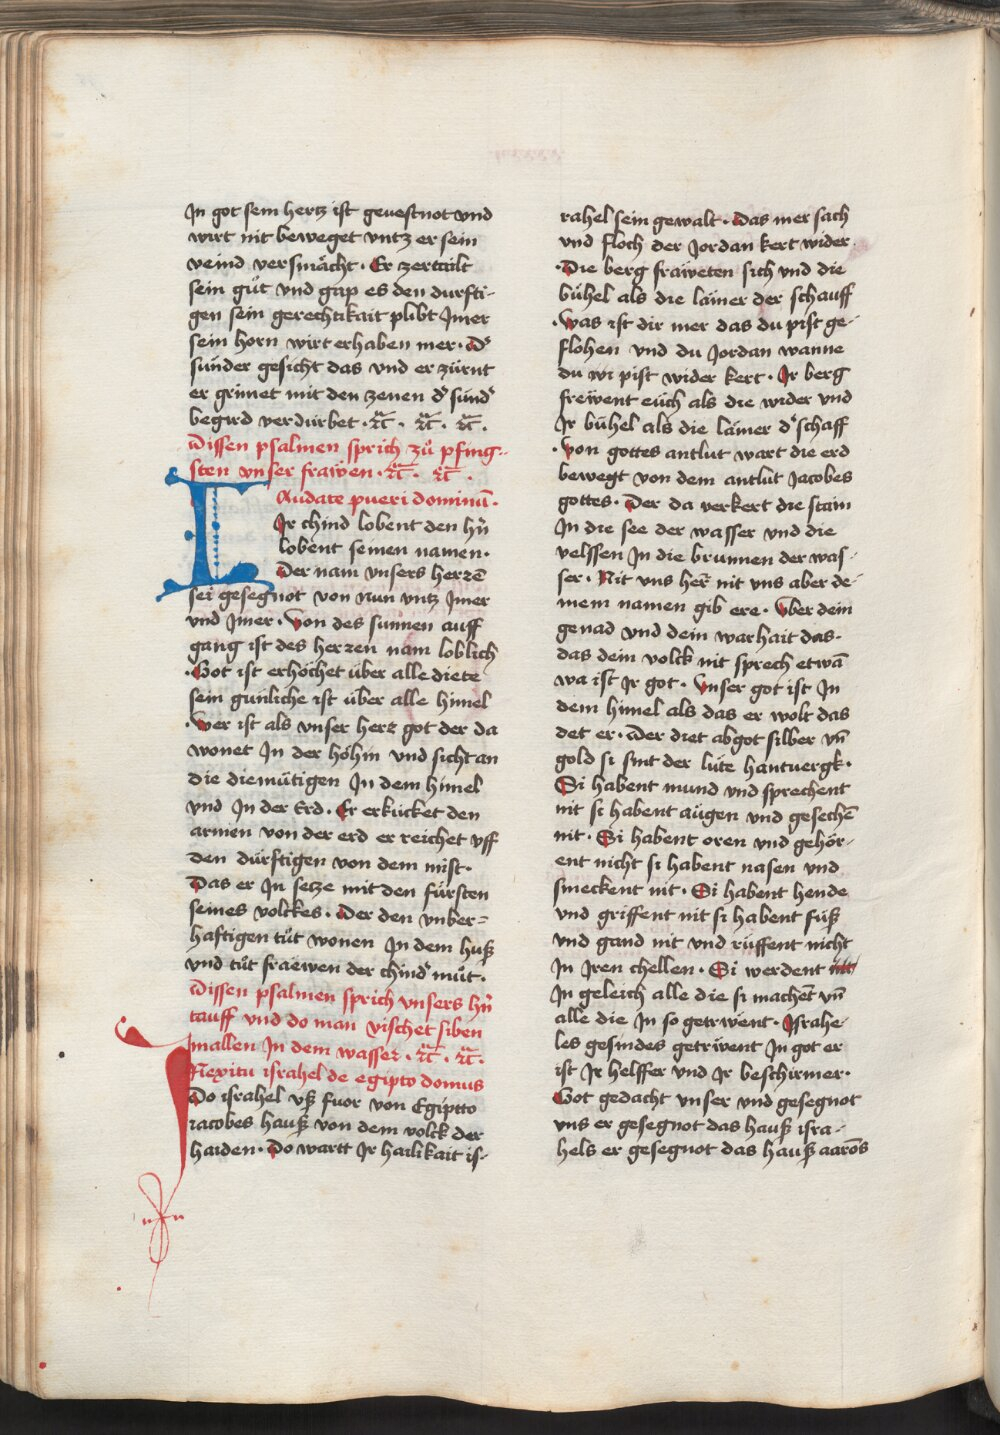 In got sein hertz ist gevestnot vnd
wirt nit beweget vntz er sein
veind versmächt · Er zertailt
sein gůt vnd gap es den durfti-
gen sein gerechtikait plibt Jmer
sein horn wirt erhaben mer · dˢ
sünder gesicht das vnd er zürnt
er grimet mit den zenen dˢ sündˢ
begird verdürbet · ꝛc̄ · ꝛc̄ · ꝛc̄ ·
Dissen psalmen sprich zů pfing-
sten vnser frawen · ꝛc̄ · ꝛc̄ ·
LAudate pueri dominū ·
Ir chind lobent den hr̄n
lobent seinen namen ·
Der nam vnsers herzē
sei gesegnot von Nun vntz Jmer
vnd Jmer · Von des sunnen auff
gang ist des herzen nam loblich
· Got ist erhöchet über alle diete
sein gunliche ist über alle himel
· Wer ist als vnser herz got der da
wonet In der höhin vnd sicht an
die diemütigen In dem himel
vnd In der Erd · Er erkücket den
armen von der erd er reichet vff
den dürftigen von dem mist ·
Das er In setze mit den fürsten
seines volckes · Der den vnber=
haftigen tůt wonen In dem huß
vnd tůt fraewen der chindˢ můt ·
Dissen psalmen sprich vnsers hr̄n
tauff vnd do man vischet siben
mallen In dem wasser · ꝛc̄ · ꝛc̄ ·
INexitu israhel de egipto domus
Do israhel vß fuor von Egiptto
iacobes hauß von dem volck der
haiden · Do wartt Ir hailikait is-
rahel sein gewalt · Das mer sach
vnd floch der Jordan kert wider ·
· Die berg fräweten sich vnd die
bühel als die lämer der schauff
· Was ist dir mer das du pist ge-
flohen vnd du Jordan wanne
du wi pist wider kert · Ir berg
frewent eüch als die wider vnd
Ir bühel als die lämer dˢ schaff
· Von gottes antlut wart die erd
bewegt von dem antlut Jacobes
gottes · Der da verkert die stain
In die see der wasser vnd die
velssen In die brunnen der was-
ser · Nit vns her̄ nit vns aber de-
inem namen gib ere · Vber dein
genad vnd dein warhait das ·
das dem volck nit sprech etwā
wa ist Ir got · Vnser got ist In
dem himel als das er wolt das
det er · Der diet abgot silber vn̄
gold si sint der lüte hantuergk ·
Si habent mund vnd sprechent
nit si habent aügen vnd gesechē
nit · Si habent oren vnd gehör-
ent nicht si habent nasen vnd
smeckent nit · Si habent hende
vnd griffent nit si habent füß
vnd gand nit vnd rüffent nicht
In Iren chellen · Si werdent
In geleich alle die si machēt vn̄
alle die In so getrwent · Israhe-
les gesindes getrüwent In got er
ist Ir helffer vnd Ir beschirmer ·
Got gedacht vnser vnd gesegnot
vns er gesegnot das hauß isra-
hels er gesegnot das hauß aarōs